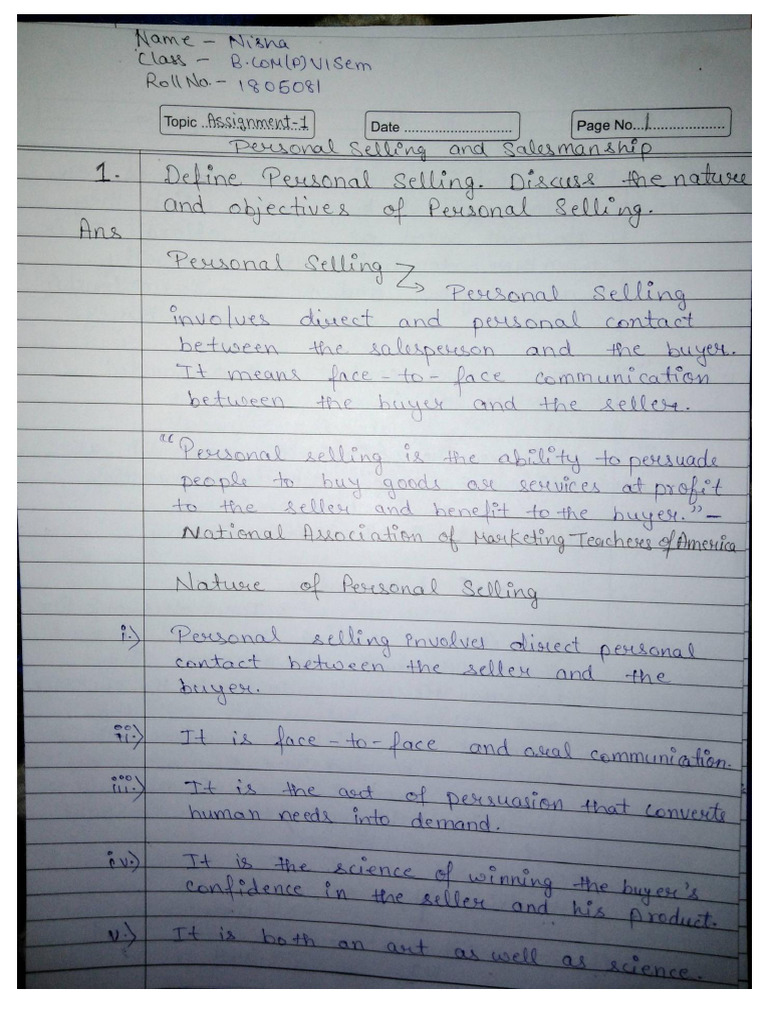 Name - Nisha
Class - B.COM(P) VI Sem
Roll No. - 1805081
Topic ..Assignment-1
Date ............................
Page No...1...................
Personal Selling and Salesmanship
1. Define Personal Selling. Discuss the nature
and objectives of Personal Selling.
Ans
Personal Selling
Personal Selling
involves direct and personal contact
between the salesperson and the buyer.
It means face-to-face communication
between the buyer and the seller.
"Personal selling is the ability to persuade
people to buy goods or services at profit
to the seller and benefit to the buyer." -
National Association of Marketing Teachers of America
Nature of Personal Selling
i.) Personal selling involves direct personal
contact between the seller and the
buyer.
ii.) It is face-to-face and oral communication.
iii.) It is the art of persuasion that converts
human needs into demand.
iv.) It is the science of winning the buyer's
confidence in the seller and his product.
v.) It is both an art as well as science.